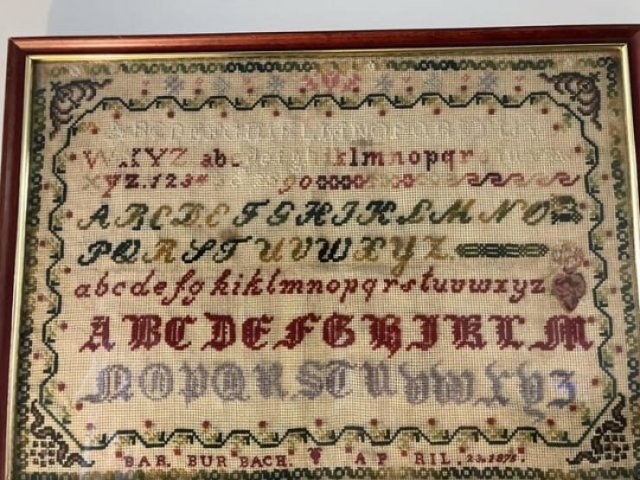 ABCDEFGHIKLMNOPQR
WXYZ abc klmnopqr
xyz.123 90
ABCDEFGHIJKLMNO
PQRSTUVWXYZ.
abcdefghiklmnopqrstuvwxyz
ABCDEFGHIJKLM
NOPQRSTUVWXYZ
BAR BUR BACH. ♥ AP RIL. 23.